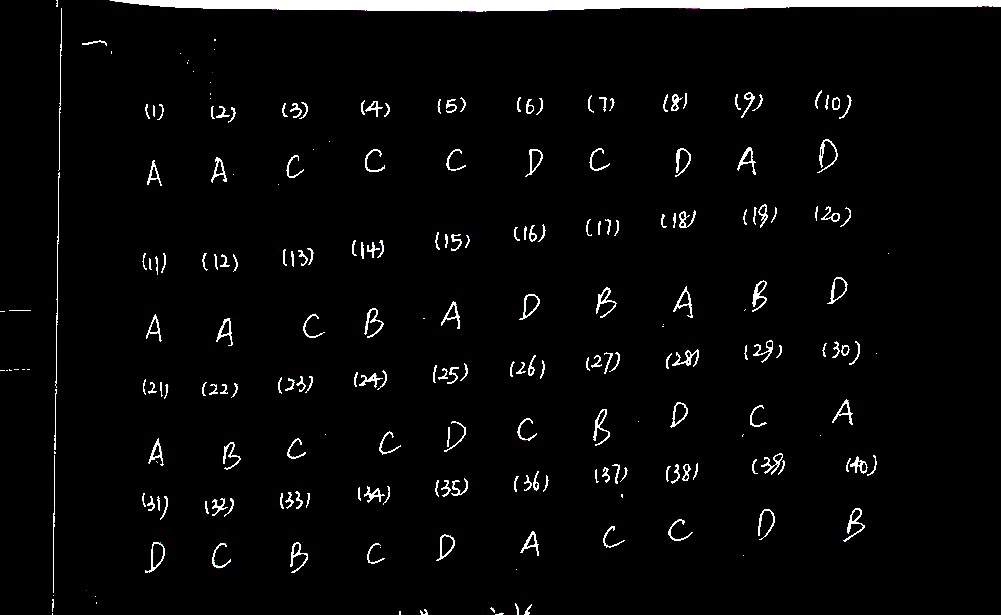 (1) (2) (3) (4) (5) (6) (7) (8) (9) (10)
A A C C C D C D A D
(11) (12) (13) (14) (15) (16) (17) (18) (19) (20)
A A C B A D B A B D
(21) (22) (23) (24) (25) (26) (27) (28) (29) (30)
A B C C D C B D C A
(31) (32) (33) (34) (35) (36) (37) (38) (39) (40)
D C B C D A C C D B